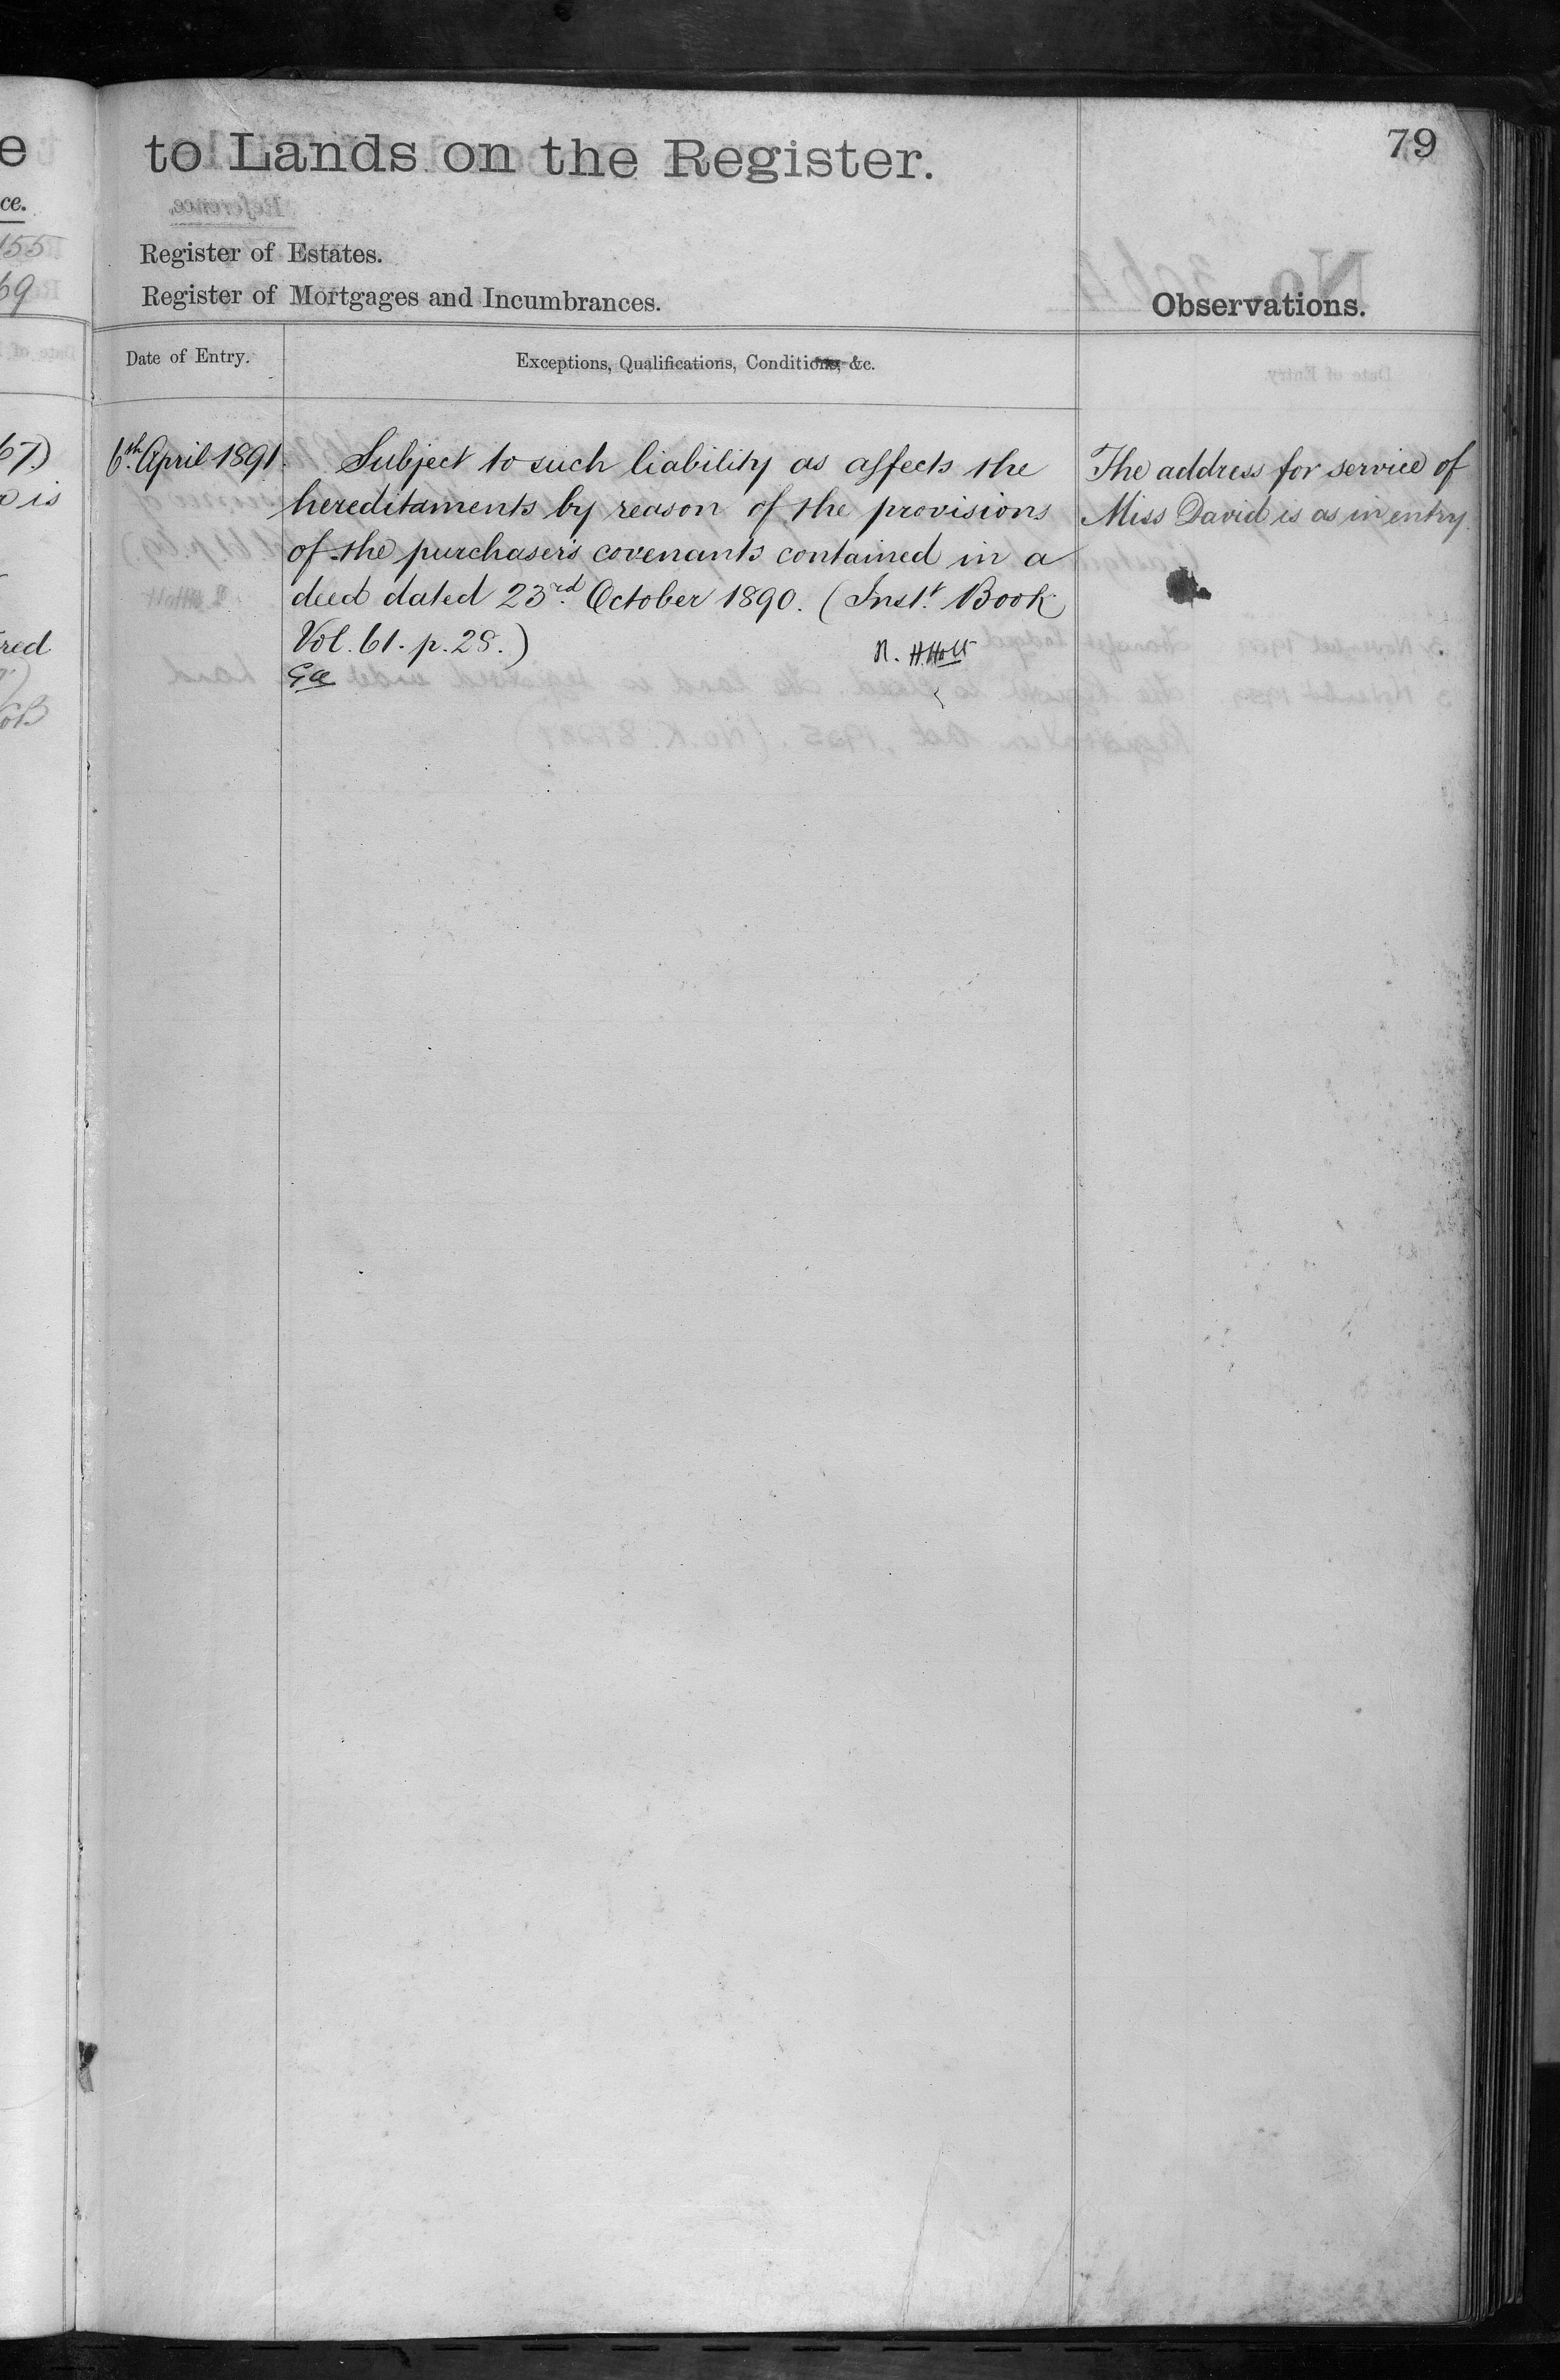 e
ce.
155
69
67.)
is
red
to Lands on the Register.
79
Register of Estates.
Register of Mortgages and Incumbrances.
Observations.
Date of Entry.
Exceptions, Qualifications, Conditions, &c.
6th April 1891.
Subject to such liability as affects the
hereditaments by reason of the provisions
of the purchaser's covenants contained in a
deed dated 23rd October 1890. (Inst. Book
Vol. 61. p. 28.)
R. H. Holt
The address for service of
Miss David is as in entry.